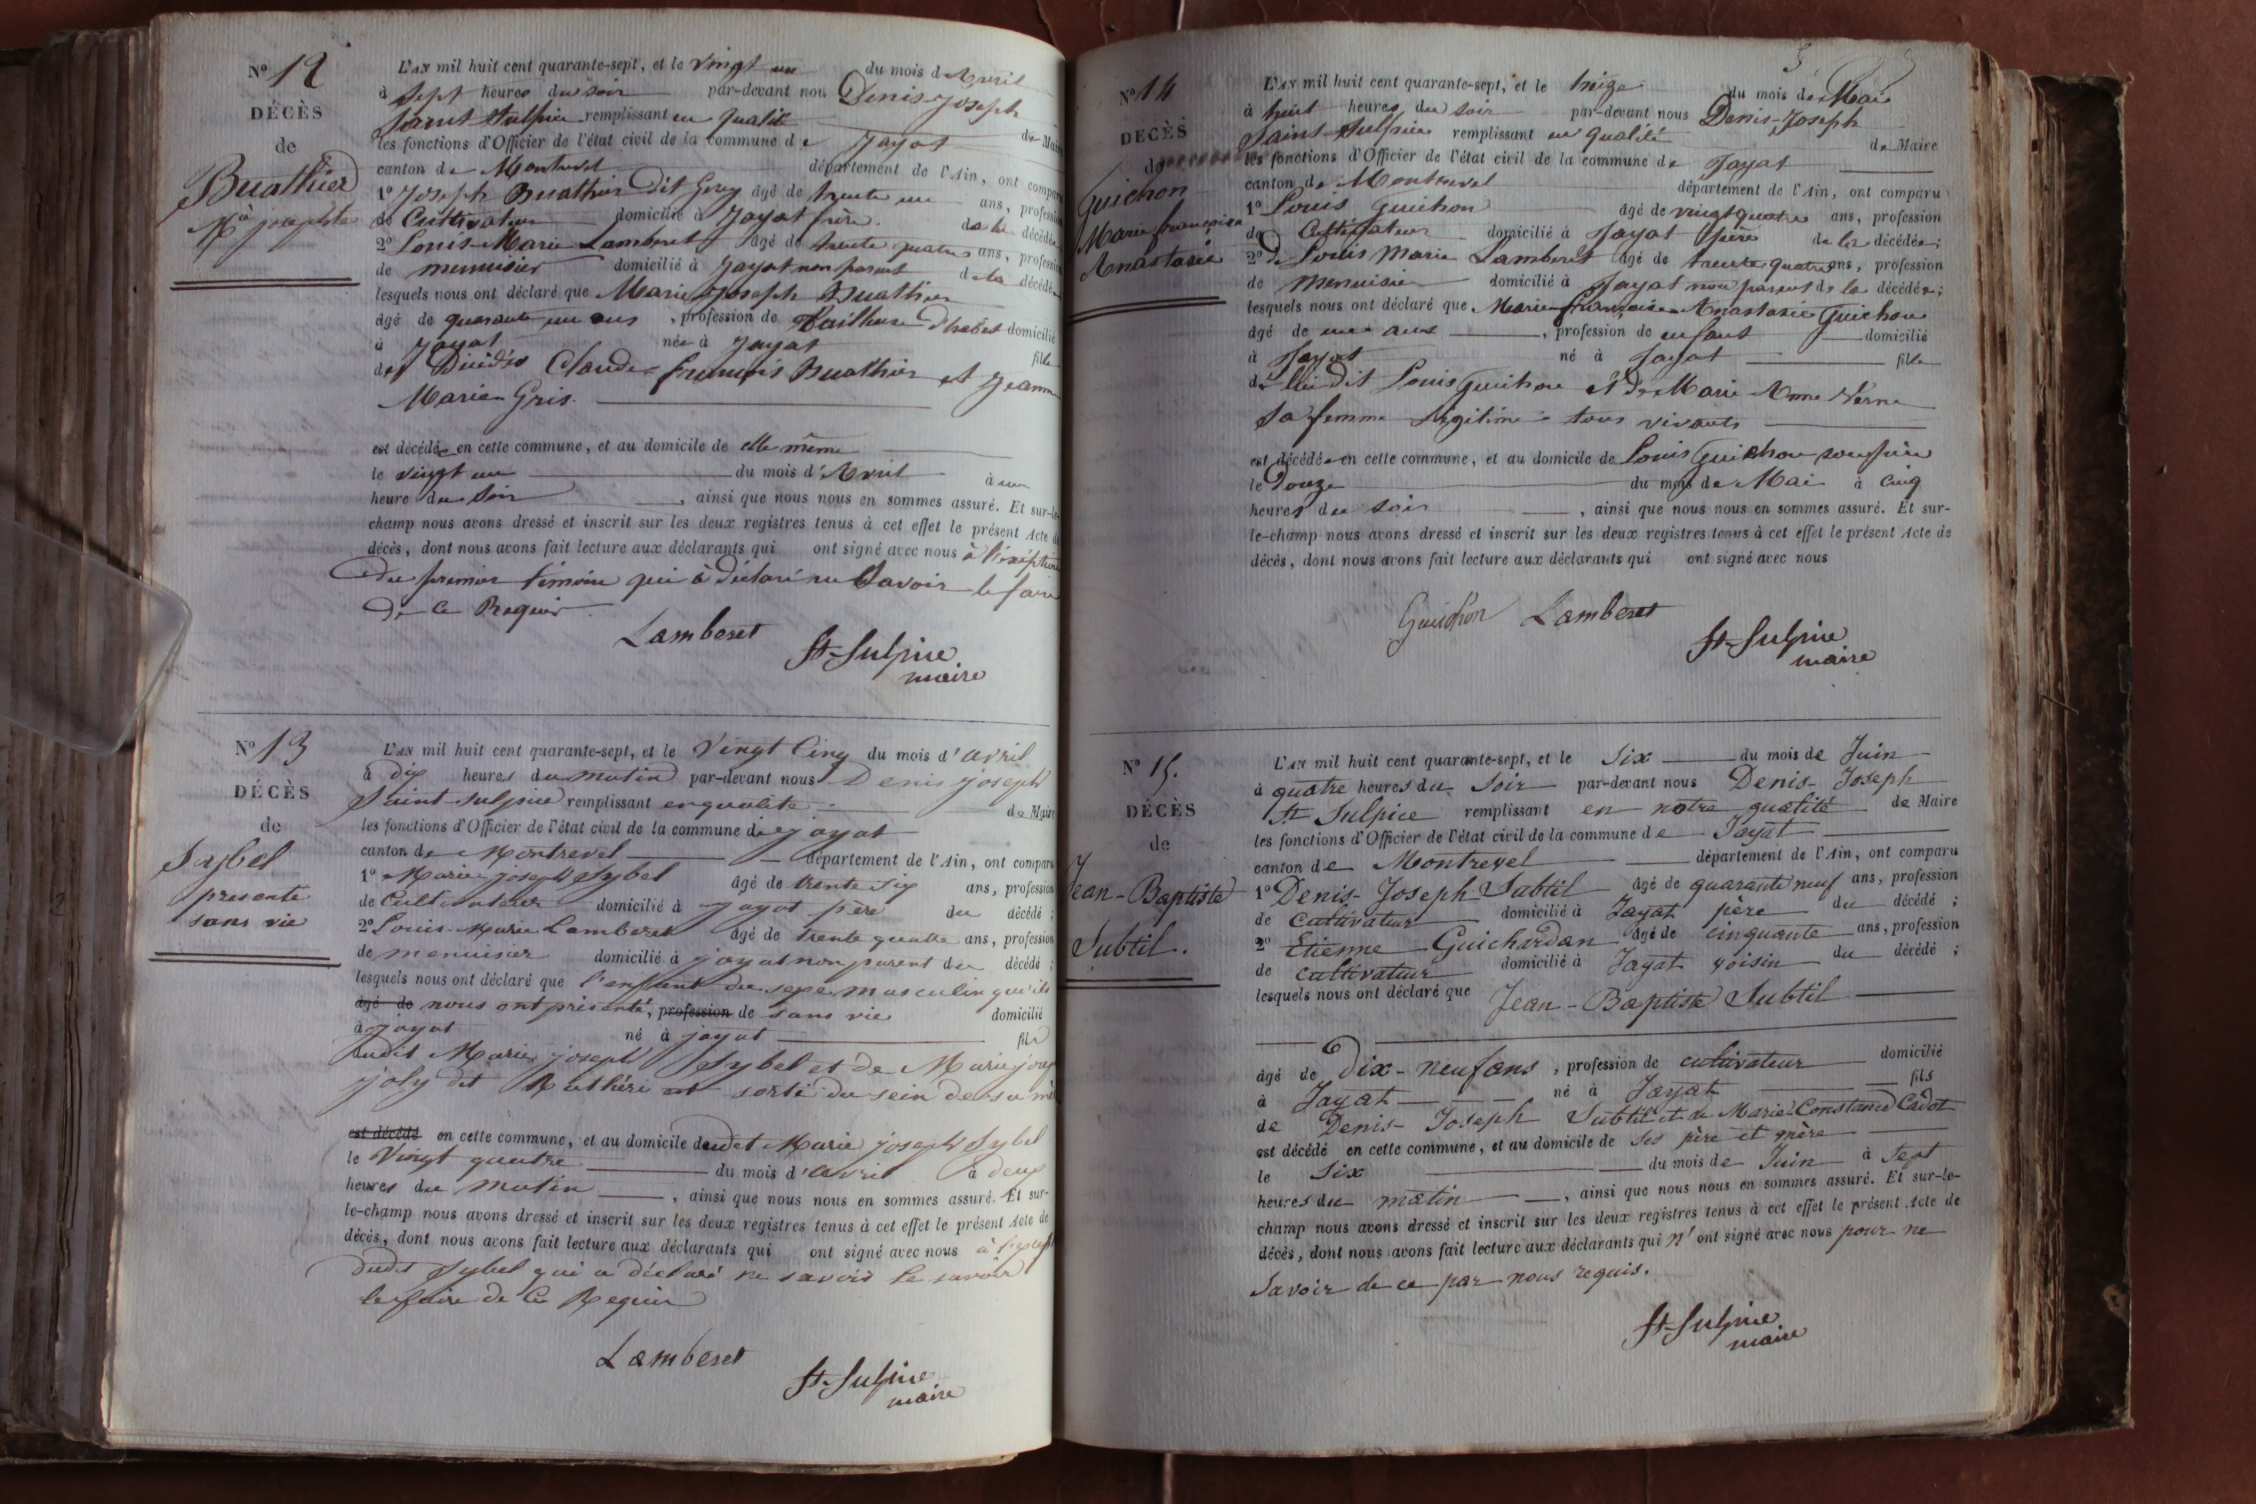 Nº 12
DÉCÈS
de
Buathier
Mie josephte
L'AN mil huit cent quarante-sept, et le vingt un du mois d'Avril
à sept heures du soir par-devant nous Denis Joseph
Saint Sulpice remplissant en qualité de Maire
les fonctions d'Officier de l'état civil de la commune de Jayat
canton de Montrevel département de l'Ain, ont comparu
1º Joseph Buathier dit Grey âgé de trente un ans, profession
de Cultivateur domicilié à Jayat frère de la décédée
2º Louis Marie Lamberet âgé de trente quatre ans, profession
de menuisier domicilié à Jayat non parent de la décédée
lesquels nous ont déclaré que Marie Joseph Buathier
âgé de quarante un ans, profession de Tailleuse d'habits domicilié
à Jayat née à Jayat fille
des Décédés Claude françois Buathier et Jeanne
Marie Gris.
est décédée en cette commune, et au domicile de elle même
le vingt un du mois d'Avril à une
heure du soir, ainsi que nous nous en sommes assuré. Et sur-le-
champ nous avons dressé et inscrit sur les deux registres tenus à cet effet le présent Acte de
décès, dont nous avons fait lecture aux déclarants qui ont signé avec nous à l'éxéption
du premier témoin qui à déclaré ne savoir le faire
de ce Requis
Lamberet
St-Sulpice
maire
Nº 13
DÉCÈS
de
Sybel
présenté
sans vie
L'AN mil huit cent quarante-sept, et le vingt Cinq du mois d'avril
à dix heures du matin par-devant nous Denis joseph
Saint-Sulpice remplissant en qualité de Maire
les fonctions d'Officier de l'état civil de la commune de jayat
canton de Montrevel département de l'Ain, ont comparu
1º Marie joseph Sybel âgé de trente six ans, profession
de Cultivateur domicilié à jayat père du décédé ;
2º Louis Marie Lamberet âgé de trente quatre ans, profession
de menuisier domicilié à jayat non parent du décédé ;
lesquels nous ont déclaré que l'enfant du sexe masculin qu'ils
âgé de nous ont présenté, profession de sans vie domicilié
à jayat né à jayat fils
dudit Marie joseph Sybel et de Marie josep
joly dit sorti du sein de sa mère
est décédé en cette commune, et au domicile dudit Marie joseph Sybel
le Vingt quatre du mois d'avril à deux
heures du matin, ainsi que nous nous en sommes assuré. Et sur-
le-champ nous avons dressé et inscrit sur les deux registres tenus à cet effet le présent Acte de
décès, dont nous avons fait lecture aux déclarants qui ont signé avec nous à l'excep
dudit Sybel qui a déclaré ne savoir le savoir
le faire de Ce Requis
Lamberet
St-Sulpice
maire
Nº 14
DÉCÈS
de
Guichon
Marie françoise
Anastasie
L'AN mil huit cent quarante-sept, et le treize du mois de Mai
à huit heures du soir par-devant nous Denis-Joseph
Saint-Sulpice remplissant en qualité de Maire
les fonctions d'Officier de l'état civil de la commune de Jayat
canton de Montrevel département de l'Ain, ont comparu
1º Louis Guichon âgé de vingt quatre ans, profession
de Cultivateur domicilié à Jayat père de la décédée ;
2º Louis Marie Lamberet âgé de trente quatre ans, profession
de menuisier domicilié à Jayat non parent de la décédée ;
lesquels nous ont déclaré que Marie françoise Anastasie Guichon
âgé de un ans, profession de enfant domicilié
à Jayat né à Jayat fille
de lui dit Louis Guichon et de Marie Anne Verne
sa femme légitime tous vivants
est décédée en cette commune, et au domicile de Louis Guichon son père
le Douze du mois de Mai à cinq
heures du soir, ainsi que nous nous en sommes assuré. Et sur-
le-champ nous avons dressé et inscrit sur les deux registres tenus à cet effet le présent Acte de
décès, dont nous avons fait lecture aux déclarants qui ont signé avec nous
Guichon Lamberet
St-Sulpice
maire
Nº 15.
DÉCÈS
de
Jean-Baptiste
Subtil.
L'AN mil huit cent quarante-sept, et le six du mois de Juin
à quatre heures du soir par-devant nous Denis-Joseph
St Sulpice remplissant en notre qualité de Maire
les fonctions d'Officier de l'état civil de la commune de Jayat
canton de Montrevel département de l'Ain, ont comparu
1º Denis-Joseph Subtil âgé de quarante neuf ans, profession
de cultivateur domicilié à Jayat père du décédé ;
2º Etienne Guichardan âgé de cinquante ans, profession
de cultivateur domicilié à Jayat voisin du décédé ;
lesquels nous ont déclaré que Jean-Baptiste Subtil
âgé de Dix-neuf ans, profession de cultivateur domicilié
à Jayat né à Jayat fils
de Denis-Joseph Subtil et de Marie Constance Cadot
est décédé en cette commune, et au domicile de ses père et mère
le Six du mois de Juin à Sept
heures du matin, ainsi que nous nous en sommes assuré. Et sur-le-
champ nous avons dressé et inscrit sur les deux registres tenus à cet effet le présent Acte de
décès, dont nous avons fait lecture aux déclarants qui n'ont signé avec nous pour ne
Savoir de ce par nous requis.
St-Sulpice
maire